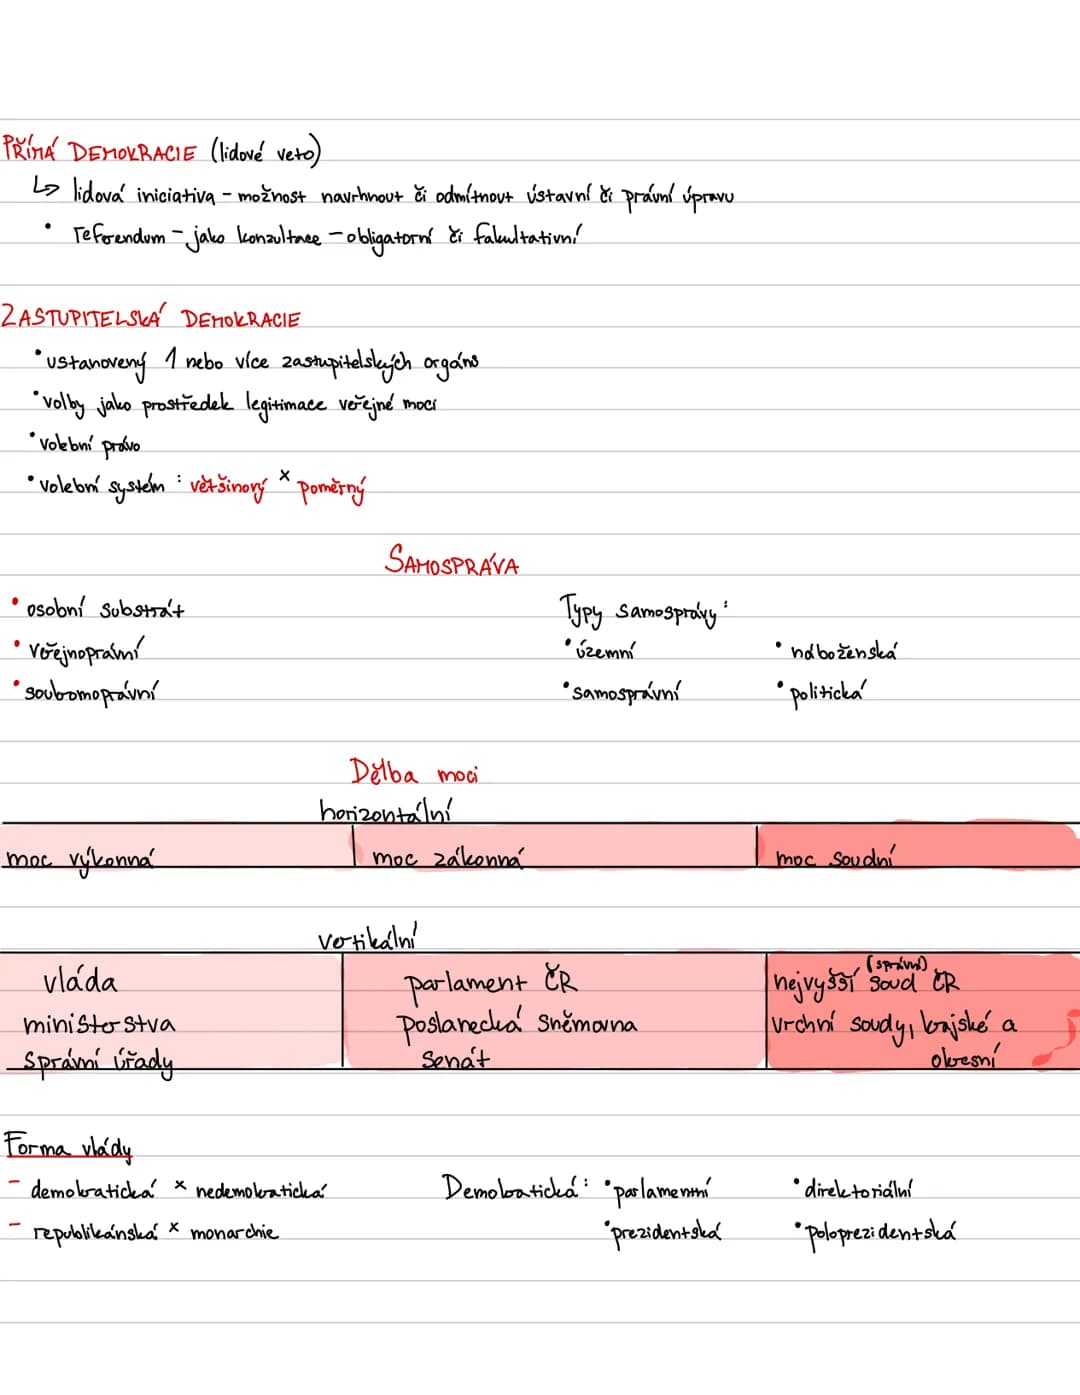 PŘÍMÁ DEMOKRACIE (lidové veto)
↳ lidová iniciativa - možnost navrhnout či odmítnout ústavní či právní úpravu
• referendum - jako konzultace - obligatorní či fakultativní
ZASTUPITELSKÁ DEMOKRACIE
• ustanovený 1 nebo více zastupitelských orgáns
• volby jako prostředek legitimace veřejné moci
• volební právo
• volební systém : většinový x poměrný
SAMOSPRÁVA
• osobní substrát
• veřejnoprávní
• soukromoprávní
Typy samosprávy:
• územní • náboženská
• samosprávní • politická
Dělba moci
horizontální
moc výkonná moc zákonná moc soudní
vertikální
vláda parlament ČR nejvyšší (správní) soud ČR
ministerstva Poslanecká Sněmovna vrchní soudy, krajské a
správní úřady Senát okresní
Forma vlády
- demokratická x nedemokratická
- republikánská x monarchie
Demokratická: • parlamentní • direktoriální
• prezidentská • poloprezidentská